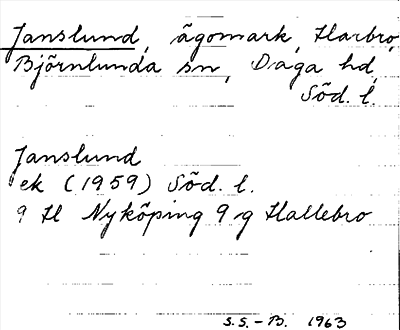 Janslund, ägomark, Harbro,
Björnlunda sn, Daga hd,
Söd. l.
Janslund
ek (1959) Söd. l.
9 H Nyköping 9 g Hallebro
S.S.-B. 1963